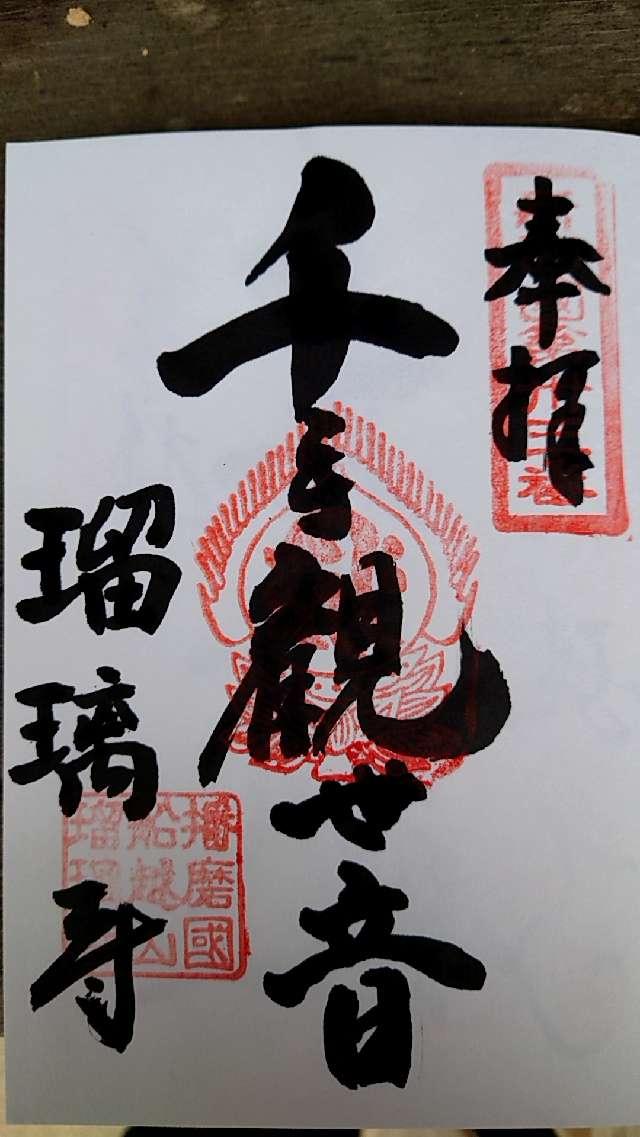 奉拝
千手観世音
瑠璃寺
播磨國
船越山
瑠璃